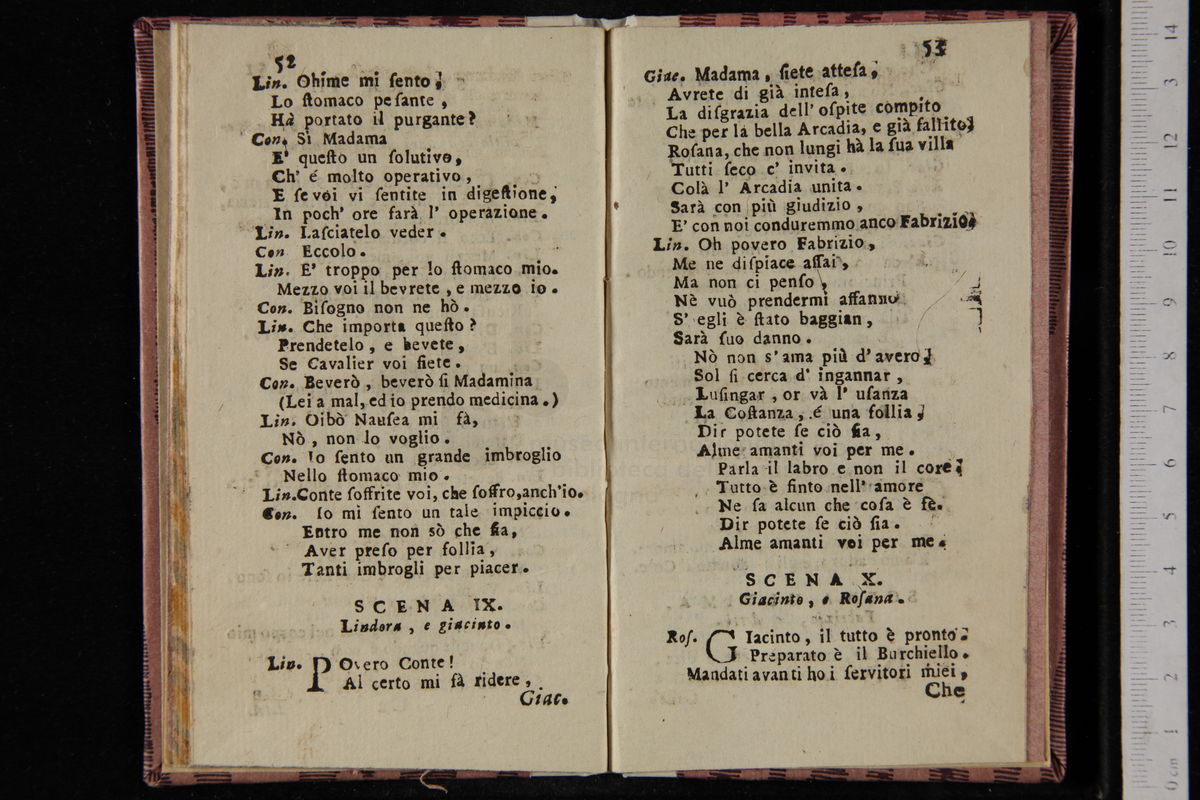 52
Lin. Ohime mi ſento;
Lo ſtomaco peſante,
Hà portato il purgante?
Con. Sì Madama
E' queſto un ſolutivo,
Ch' é molto operativo,
E ſe voi vi ſentite in digeſtione,
In poch' ore farà l' operazione.
Lin. Laſciatelo veder.
Con Eccolo.
Lin. E' troppo per lo ſtomaco mio.
Mezzo voi il bevrete, e mezzo io.
Con. Biſogno non ne hò.
Lin. Che importa queſto?
Prendetelo, e bevete,
Se Cavalier voi ſiete.
Con. Beverò, beverò ſi Madamina
(Lei a mal, ed io prendo medicina.)
Lin. Oibò Nauſea mi fà,
Nò, non lo voglio.
Con. Io ſento un grande imbroglio
Nello ſtomaco mio.
Lin. Conte ſoffrite voi, che ſoffro, anch'io.
Con. Io mi ſento un tale impiccio.
Entro me non sò che ſia,
Aver preſo per follia,
Tanti imbrogli per piacer.
SCENA IX.
Lindora, e giacinto.
Lin. POvero Conte!
Al certo mi fà ridere,
Giac.
53
Giac. Madama, ſiete atteſa,
Avrete di già inteſa,
La diſgrazia dell' oſpite compito
Che per la bella Arcadia, e già fallito;
Roſana, che non lungi hà la ſua villa
Tutti ſeco c' invita.
Colà l' Arcadia unita.
Sarà con più giudizio,
E' con noi conduremmo anco Fabrizio;
Lin. Oh povero Fabrizio,
Me ne diſpiace aſſai,
Ma non ci penſo,
Nè vuò prendermi affanno
S' egli è ſtato baggian,
Sarà ſuo danno.
Nò non s'ama più d'avero;
Sol ſi cerca d' ingannar,
Luſingar, or và l' uſanza
La Coſtanza, é una follia;
Dir potete ſe ciò ſia,
Alme amanti voi per me.
Parla il labro e non il core;
Tutto è finto nell' amore
Ne ſa alcun che coſa è fè.
Dir potete ſe ciò ſia.
Alme amanti voi per me.
SCENA X.
Giacinto, e Roſana.
Roſ. GIacinto, il tutto è pronto:
Preparato è il Burchiello.
Mandati avanti ho i ſervitori miei,
Che
0 cm 1 2 3 4 5 6 7 8 9 10 11 12 13 14